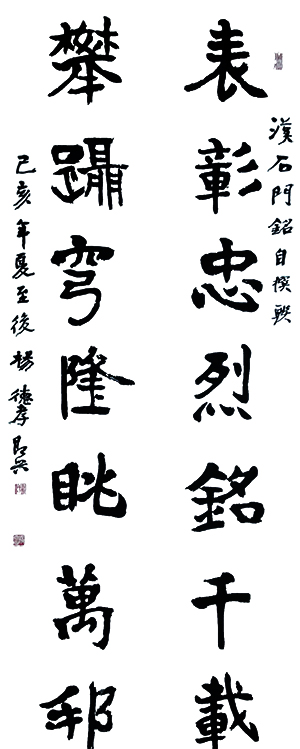 漢石門銘自撰聯
表彰忠烈銘千載
攀躡穹隆眺萬邦
己亥年夏至後 楊德孝